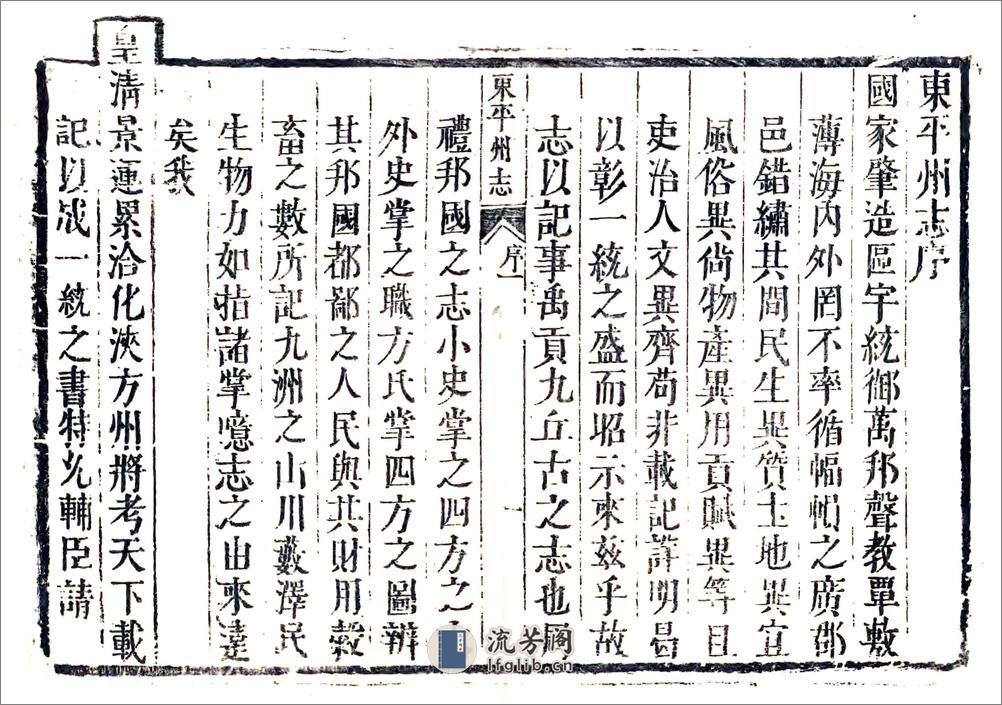 東平州志序
國家肇造區宇統御萬邦聲教覃敷
薄海內外罔不率循幅幀之廣郡
邑錯繡其間民生異質土地異宜
風俗異尚物產異用貢賦異等且
吏治人文異齊苟非載記詳明曷
以彰一統之盛而昭示來茲乎故
志以記事禹貢九丘古之志也
東平州志
序
一
禮邦國之志小史掌之四方之
外史掌之職方氏掌四方之圖辨
其邦國都鄙之人民與其財用榖
畜之數所記九洲之山川藪澤民
生物力如指諸掌噫志之由來遠
矣我
皇清景運累洽化浹方州將考天下載
記以成一統之書特允輔臣請
流芳阁
lfglib.cn